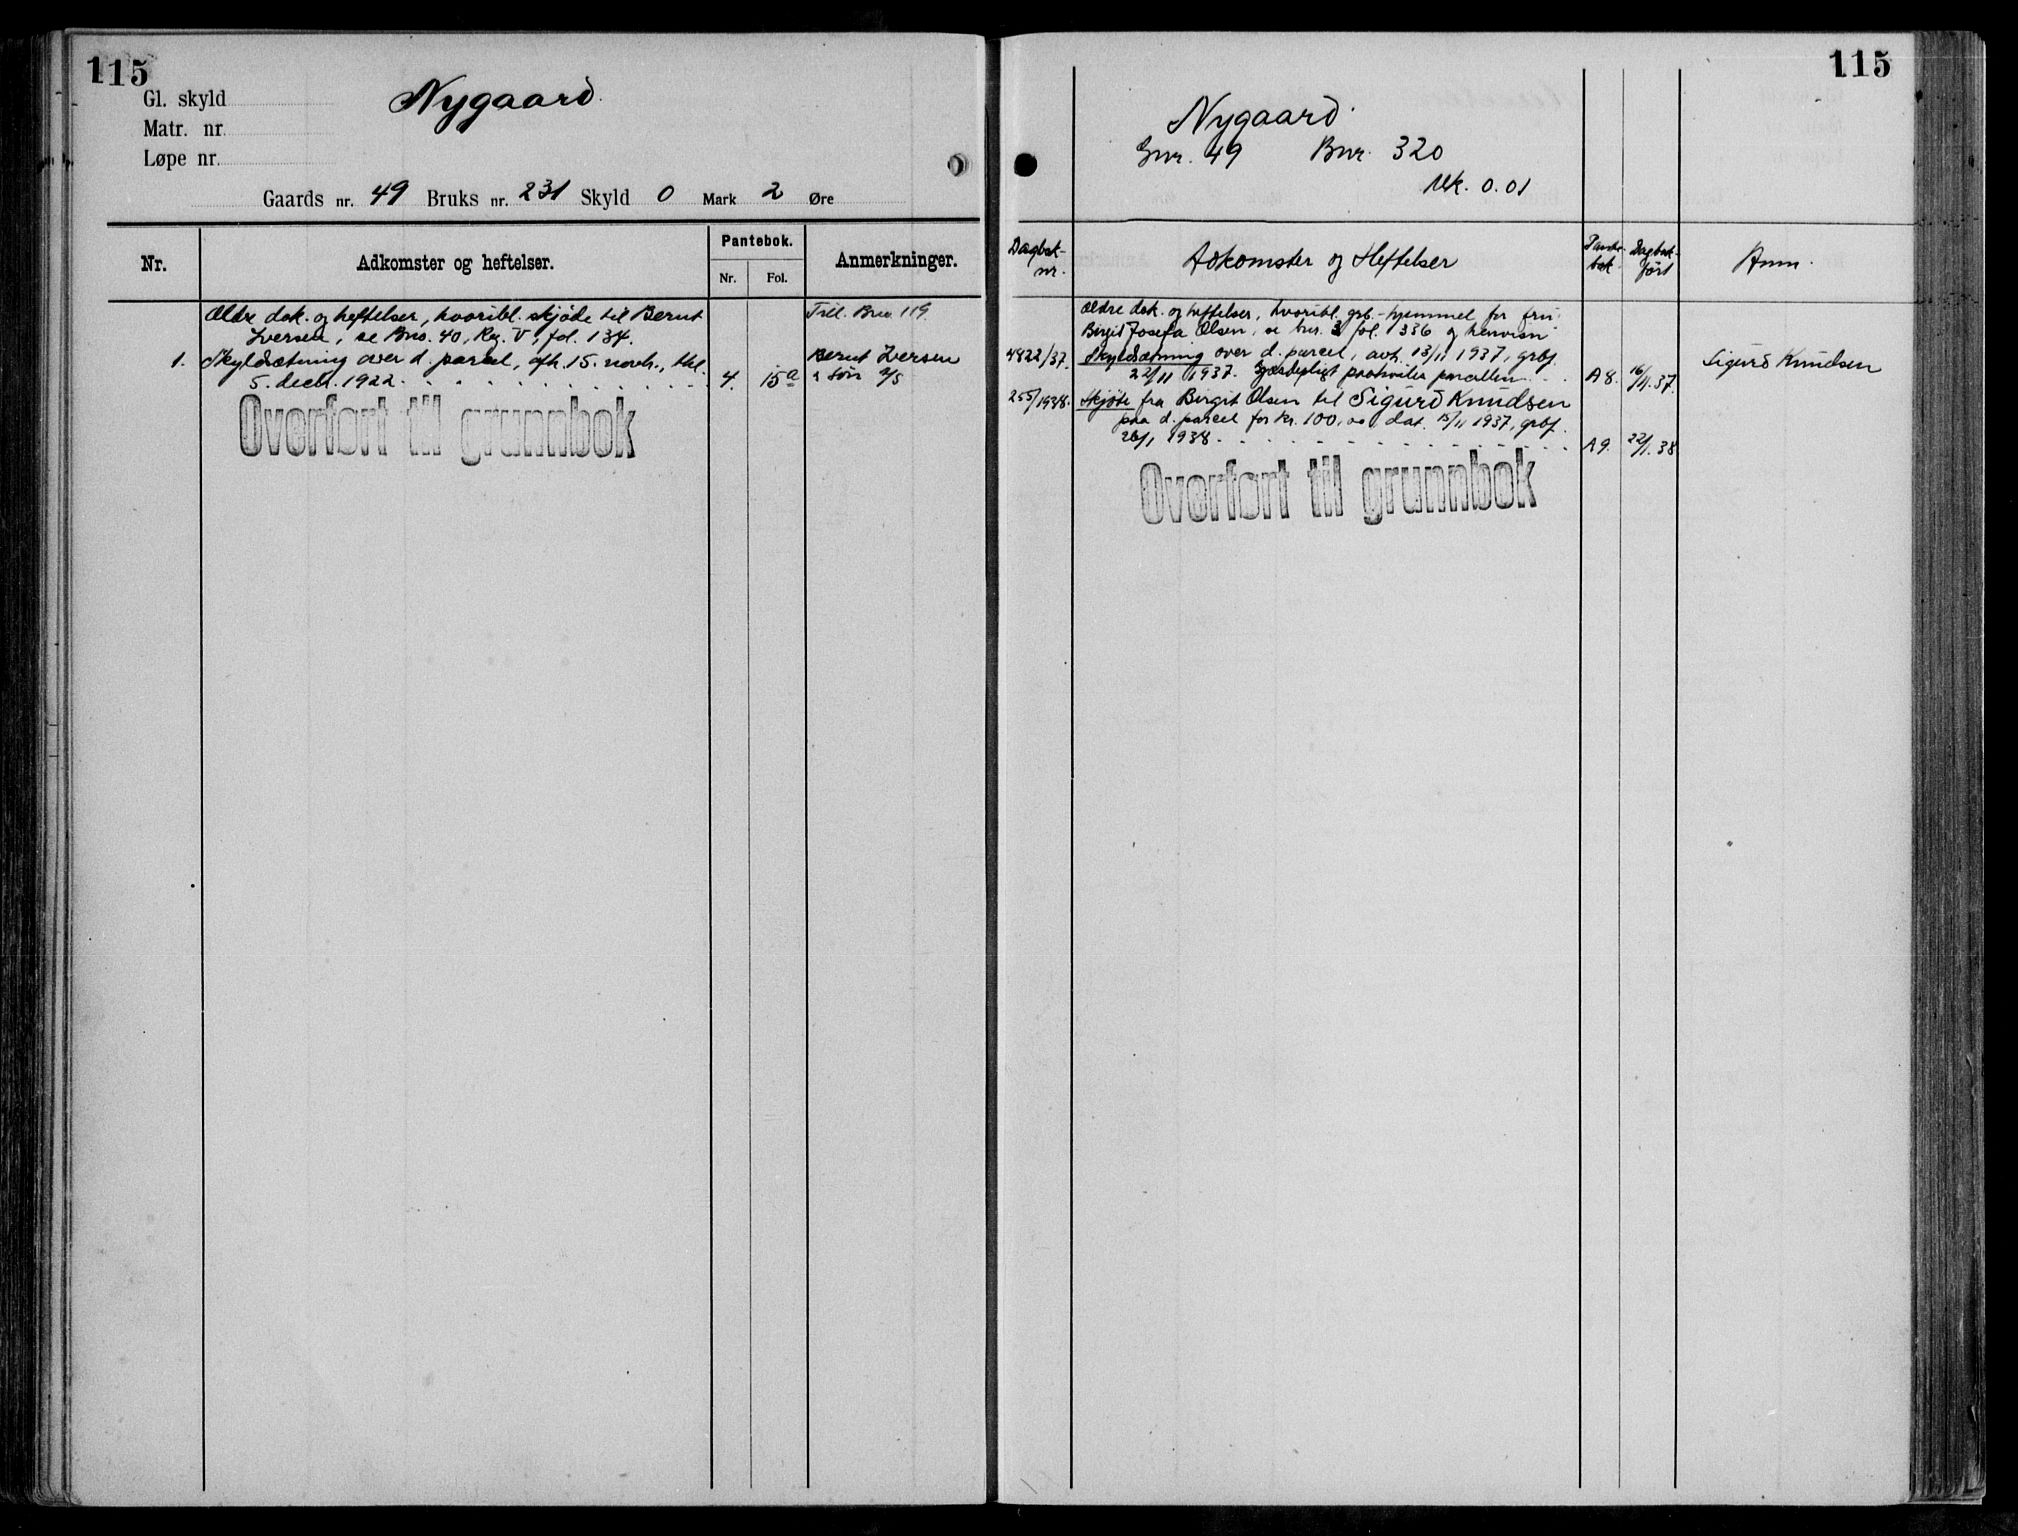 115
Gl. skyld
Nygaard.
Matr. nr.
Løpe nr.
Gaards nr. 49 Bruks nr. 231 Skyld 0 Mark 2 Øre
Nr.
Adkomster og heftelser.
Pantebok.
Nr.
Fol.
Anmerkninger.
Ældre dok. og heftelser, hvoribl. skjøde til Bernt
Iversen, se Bno. 40, Rg. V, fol. 134.
Till. Bno 119
1. Skyldsætning over d. parcel, afh. 15. novb., thl.
5. decb. 1922. 4. 15a
Bernt Iversen
& Søn A/S
Overført til grunnbok
115
Nygaard.
Gnr. 49 Bnr. 320
Mk. 0.01
Dagbok-
nr.
Adkomster og Heftelser
Pante-
bok
Dagbok-
ført
Anm.
Ældre dok. og heftelser, hvoribl. grb.-hjemmel for fru
Birgit Josefa Olsen, se bnr. 3 fol. 336 og henvisn
4822/37. Skyldsætning over d. parcel, avh. 13/11 1937, grbf.
22/11 1937. paahviler parcellen. A 8. 16/11.37.
Sigurd Knudsen
255/1938. Skjøte fra Birgit Olsen til Sigurd Knudsen
paa d. parcel for kr. 100,00, dat. 15/11 1937, grbf.
26/1 1938. A 9. 22/1.38
Overført til grunnbok